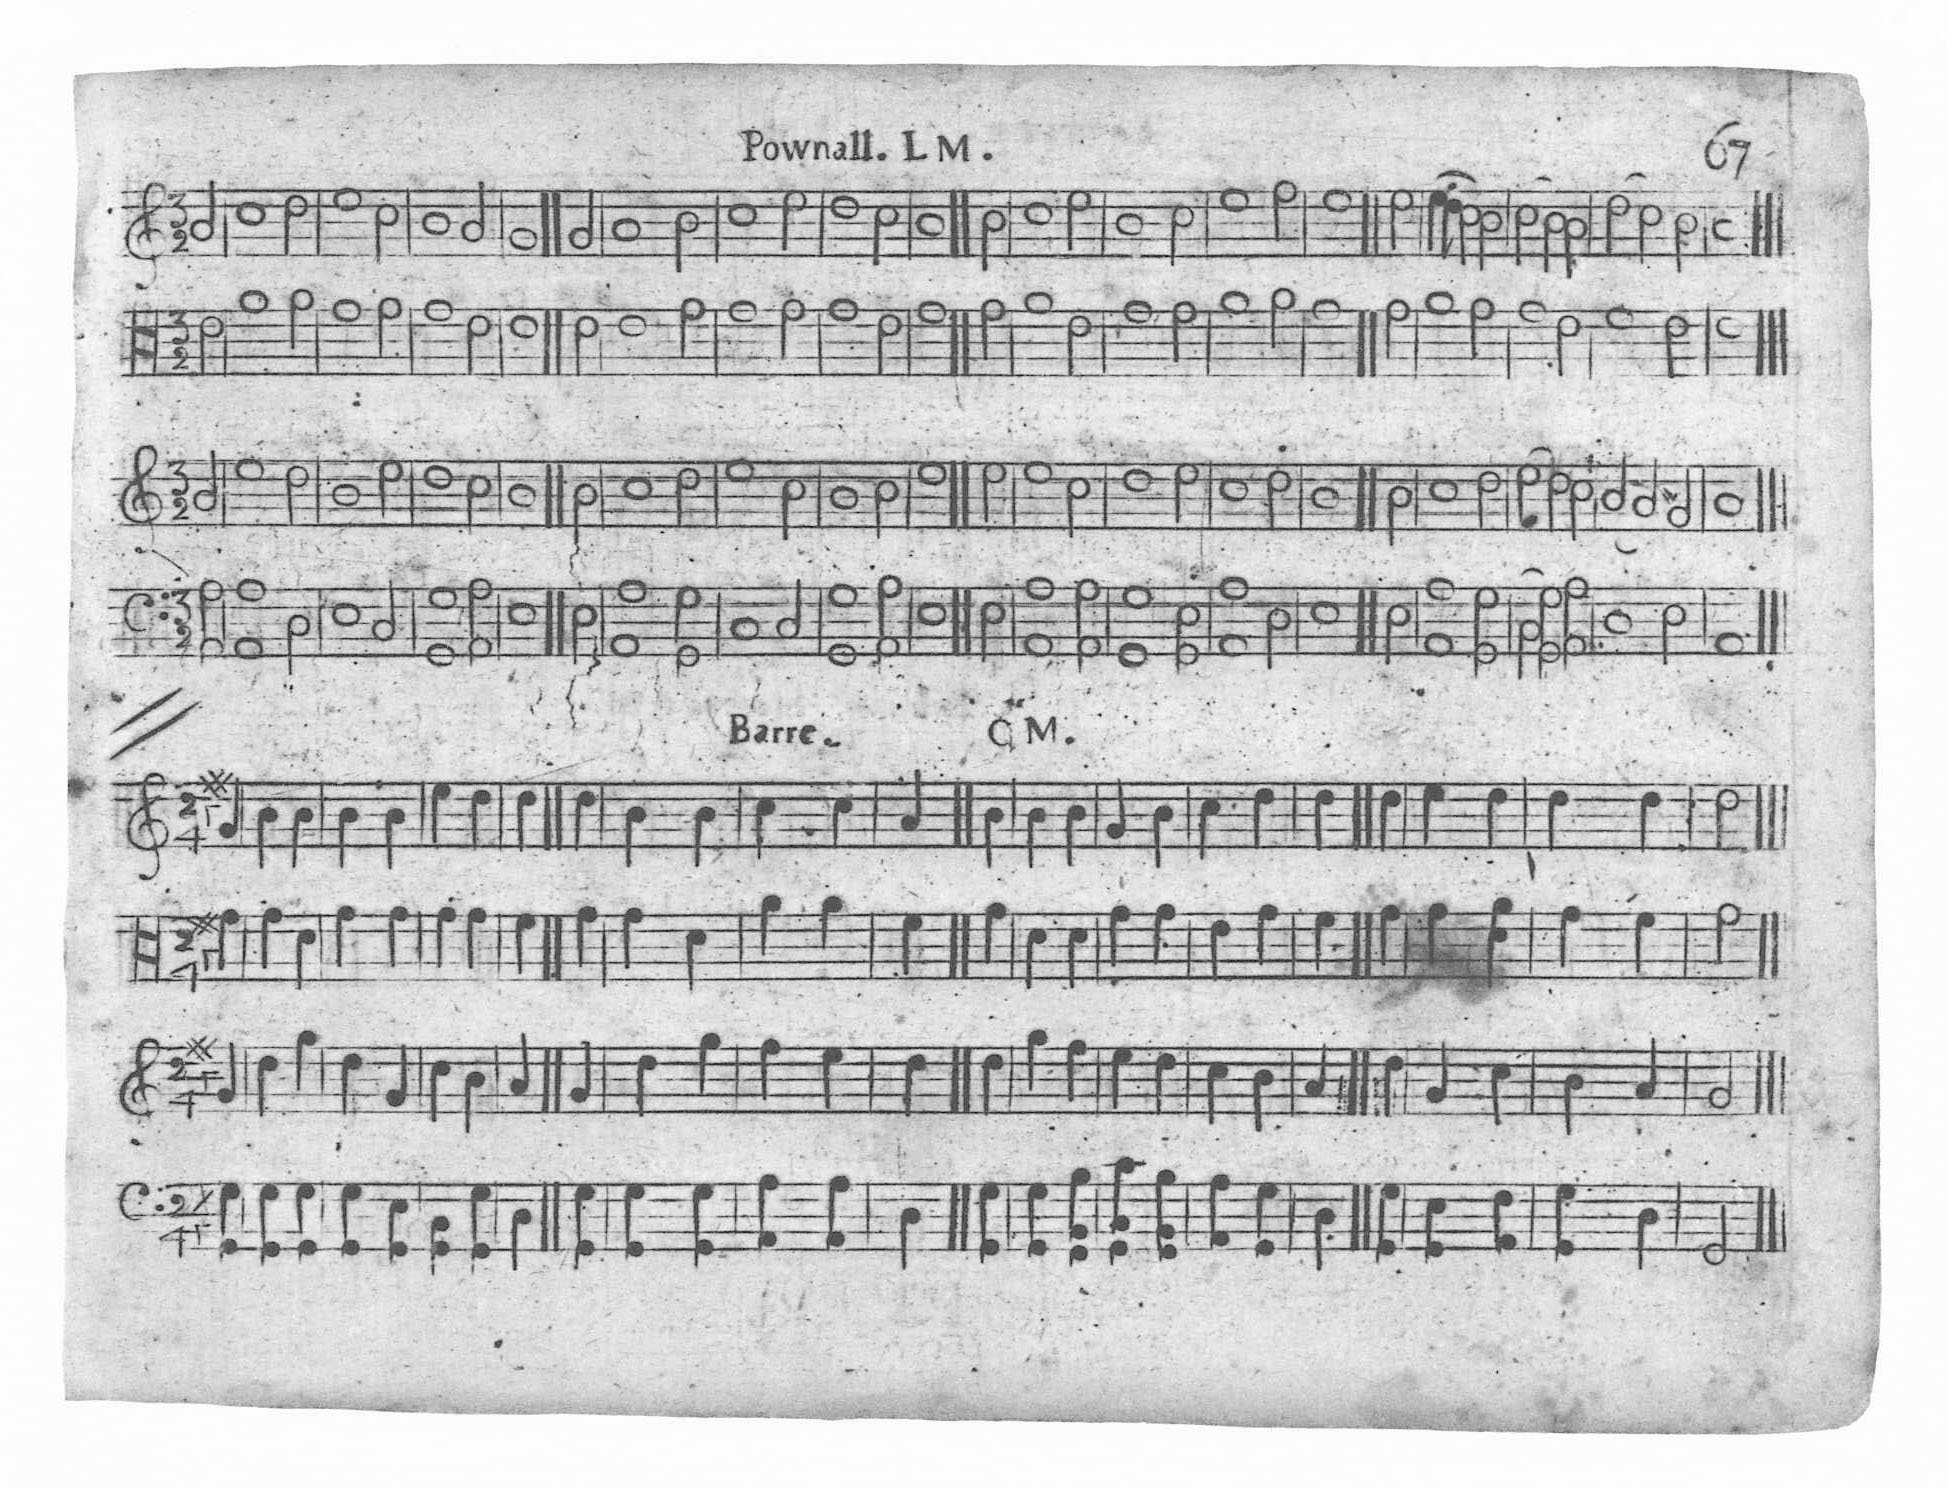 Pownall. L M.
67
3
2
3
2
3
2
3
2
Barre. C M.
2
4
2
4
2
4
2
4